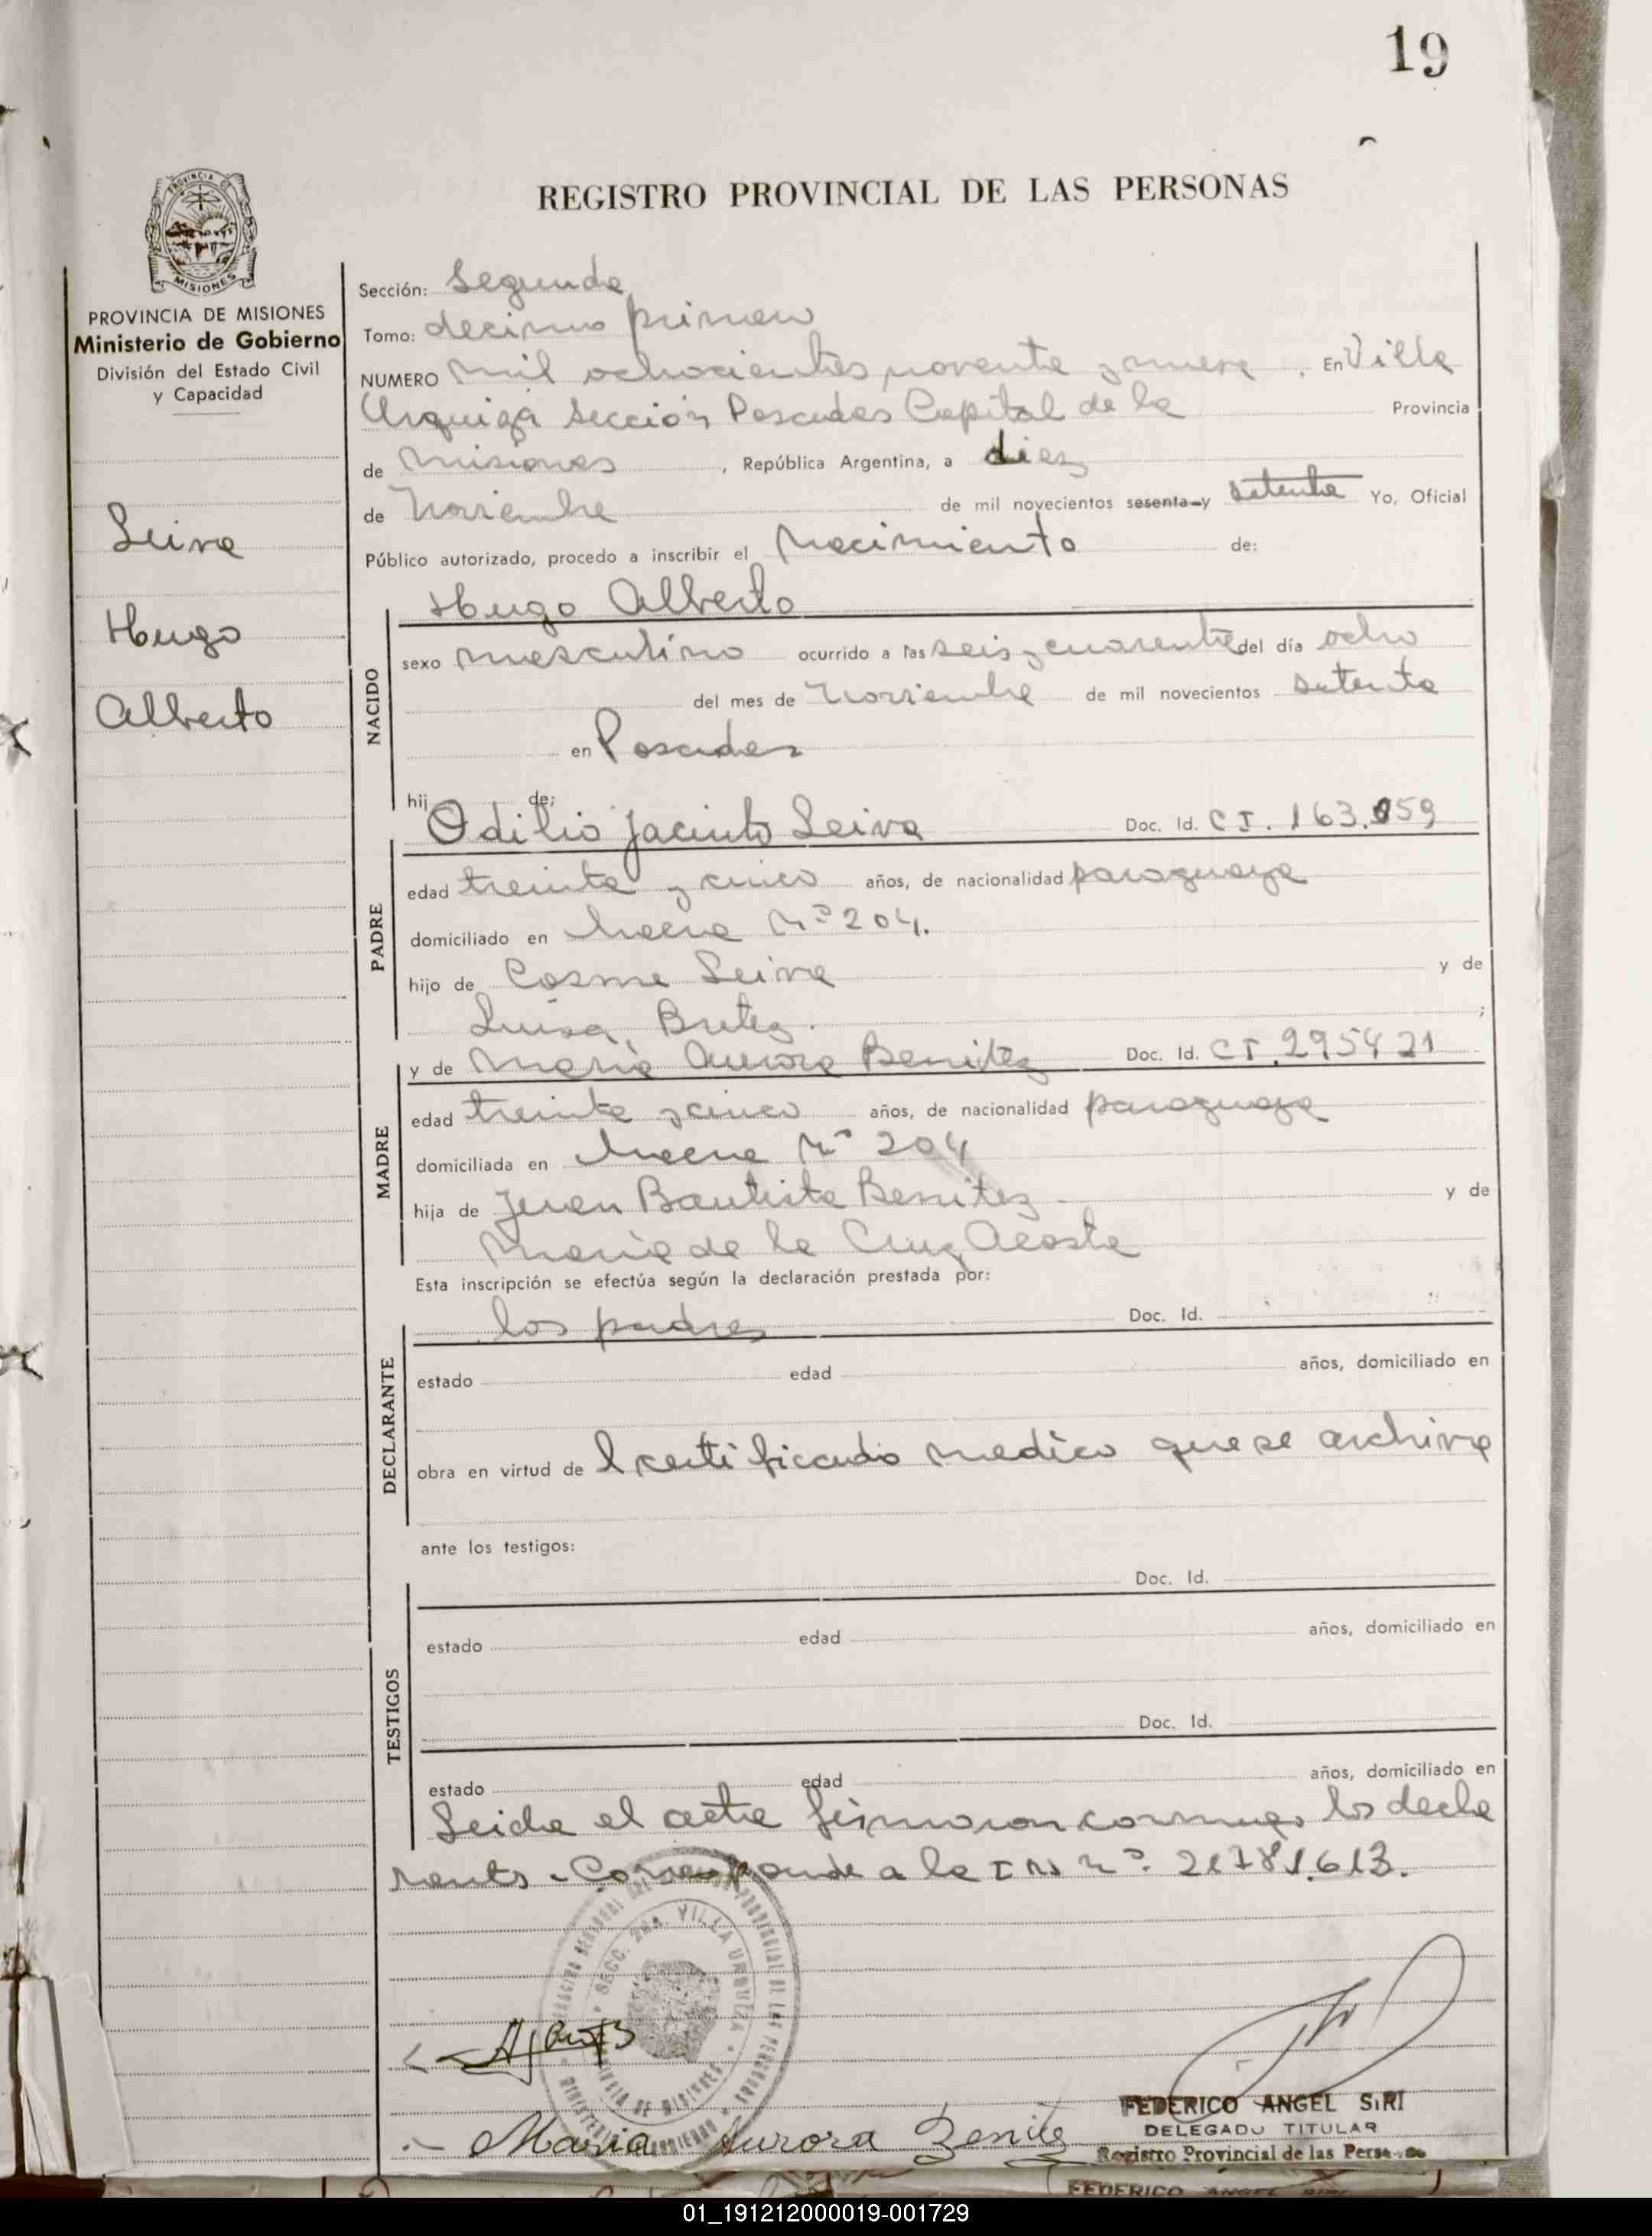 19
REGISTRO PROVINCIAL DE LAS PERSONAS
PROVINCIA DE MISIONES
PROVINCIA DE MISIONES
Ministerio de Gobierno
División del Estado Civil
y Capacidad
Leiva
Hugo
Alberto
Sección: Segunda
Tomo: decimo primero
NUMERO mil ochocientos noventa y nueve, En Villa
Urquiza Sección Posadas Capital de la Provincia
de Misiones, República Argentina, a diez
de Noviembre de mil novecientos sesenta y setenta Yo, Oficial
Público autorizado, procedo a inscribir el Nacimiento de:
Hugo Alberto
NACIDO
sexo masculino ocurrido a las seis y cuarenta del día ocho
del mes de Noviembre de mil novecientos setenta
en Posadas
hij de:
Odilio Jacinto Leiva Doc. Id. CI. 163.059
PADRE
edad treinta y cinco años, de nacionalidad paraguaya
domiciliado en Nº 204.
hijo de Cosme Leiva y de
Luisa Britez.;
y de Maria Aurora Benitez Doc. Id. CI. 295421
MADRE
edad treinta y cinco años, de nacionalidad paraguaya
domiciliada en Nº 204
hija de Juan Bautista Benitez y de
Maria de la Cruz Acosta
Esta inscripción se efectúa según la declaración prestada por:
los padres Doc. Id.
DECLARANTE
estado edad años, domiciliado en
obra en virtud de l certificado medico que se archiva
ante los testigos:
Doc. Id.
TESTIGOS
estado edad años, domiciliado en
Doc. Id.
estado edad años, domiciliado en
Leida el acta firmaron conmigo los decla
rants - Corresponde a la nº. 21781.613.
SECC. 2DA. VILLA URQUIZA
Maria Aurora Benitez
FEDERICO ANGEL SIRI
DELEGADO TITULAR
Registro Provincial de las Personas
FEDERICO ANGEL SIRI
01_191212000019-001729